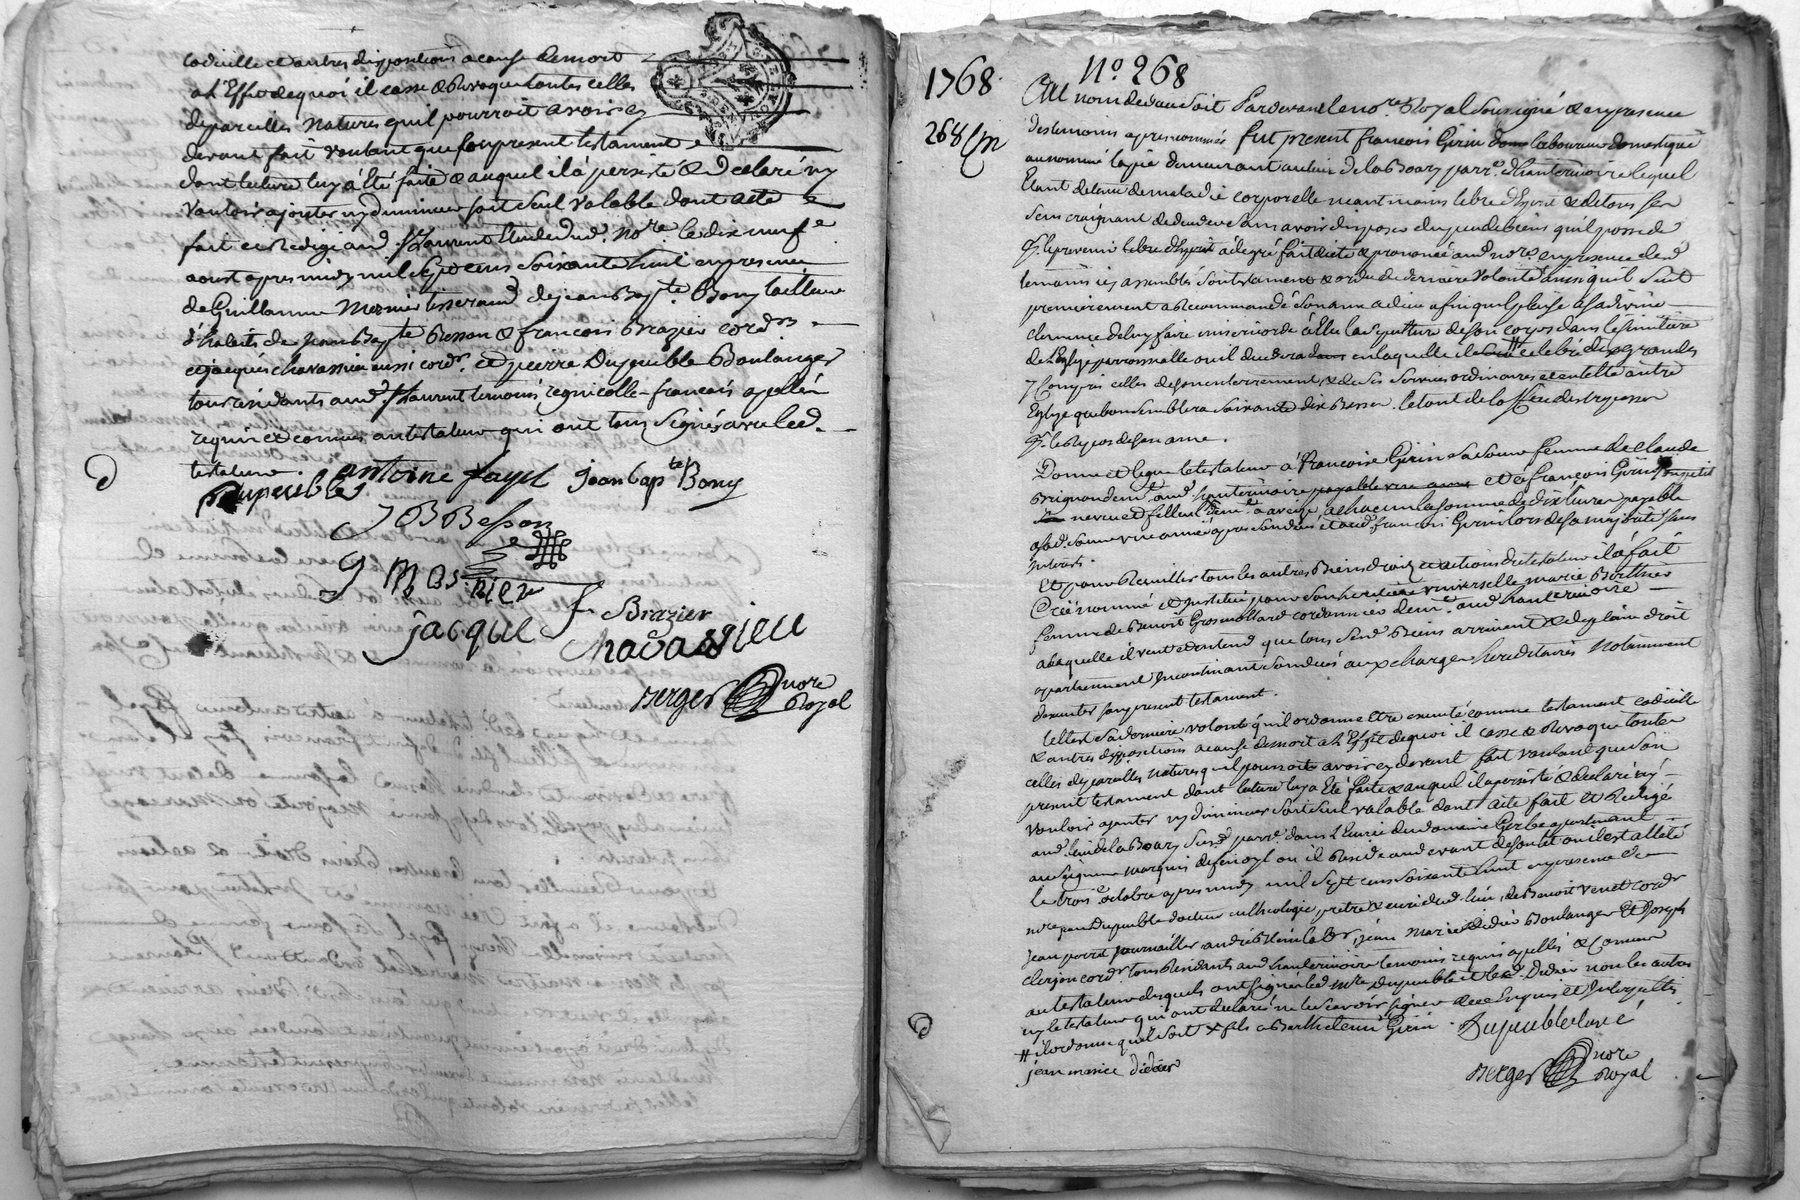 codicille et autres dispositions a cause de mort
a l'Effet de quoi il casse & Revoque toutes celles
de pareilles natures qu'il pourroit avoir cy
devant fait voulant que son present testament
dont lecture luy a Eté faite & auquel il a persisté & declaré ny
vouloir ajouter ny diminuer soit seul valable dont acte
fait et Redigé aud. St Laurent Etude dud. nore. le dix neufe
aoust apres midy mil sept cens soixante huit en presence
de Guillaume Mosnier tisserand de jean Bapte. Bony tailleur
d'habits de jean Bapte Besson & francois Brazier cordrs.
et jacques chavassieu aussi cordr. et pierre Dupeuble Boulanger
tous residants aud. St Laurent temoins regnicolle francois apellés
requis et connus au testateur qui ont tous signés avec led.
testateur.
Dupeuble antoine fayel jean bapte Bony
J B Besson
g Mosnier
f Brazier
jacque Chavassieu
Berger nore Royal
1768 No. 268
268
Au nom de dieu soit Pardevant le nore Royal soussigné & en presence
des temoins apres nommés fut present francois Girin laboureur domestique
demeurant au lieu de la Boary parre. d'hauterivoire lequel
Etant detenu de maladie corporelle neantmoins libre d'Esprit & de tous sens
craignant de deceder sans avoir disposé du peu de biens qu'il possede
libre d'Esprit a de gré fait dicté & prononcé aud nore. en presence desd
temoins icy assemblés son testament & ordre de derniere volonté ainsi qu'il suit
premierement a Recommandé son ame a dieu afin qu'il plaise a sa divine
clemence de luy faire misericorde a Elu la sepulture de son corps dans le cimetiere
de l'Eglise parroissialle ou il decedera en laquelle il celebré dix grandes
y compris celles de son enterrement & de ses services ordinaires et en telle autre
Eglise que bon semblera soixante dix Basses. le tout de l'office des trepassés
pr. le Repos de son ame.
Donne et legue le testateur à francoise Girin sa soeur femme de claude
Brignon demt. aud. hauterivoire et à francois Girin son petit
neveu et filleul demt. a aveize, a chacun la somme de dix livres payable
a sad. soeur une année apres son deces et aud. francois Girin lors de sa majorité sans
interets.
Et pour Recuillir tous les autres Biens droits et actions du testateur il a fait
Créé nommé et Institué pour son heritiere universelle marie Berthier
femme de Benoit Grosmollard cordonnier demt. aud hauterivoire
a laquelle il veut & entend que tous sesd Biens arrivent & de plein droit
apartiennent Incontinant son deces aux charges hereditaires notamment
d'executer son present testament.
telle est sa derniere volonté qu'il ordonne etre executé comme testament codicille
& autres dispositions a cause de mort a l'Effet de quoi il casse & Revoque toutes
celles de pareilles natures qu'il pourroit avoir cy devant fait voulant que son
present testament dont lecture luy a Eté faite & auquel il a persisté & declaré ny
vouloir ajouter ny diminuer soit seul valable dont acte fait et Redigé
aud. lieu de la Boary susd parre. dans l'Ecurie du domaine Gerbe apartenant
au seigneur marquis de fenoyl ou il Reside aud evant de son lit ou il est alleté
le trois octobre apres midy mil sept cens soixante huit en presence de
mre jean Dupeuble docteur en theologie, pretre & curé dud. lieu, de Benoit venet cordr
jean poirrit journailler andré Blein labr, jean marie didier Boulanger Et Joseph
clerjon cordr. tous Residants aud hauterivoire temoins requis apellés & connus
au testateur desquels ont signé led mre Dupeuble et led. Didier non les autres
ny le testateur qui ont declarés ne le scavoir signer de ce Enquis et Interpellés
# il ordonne qu'il soit x fils a Barthelemi Girin. Dupeuble curé
jean marie didier
Berger nore Royal